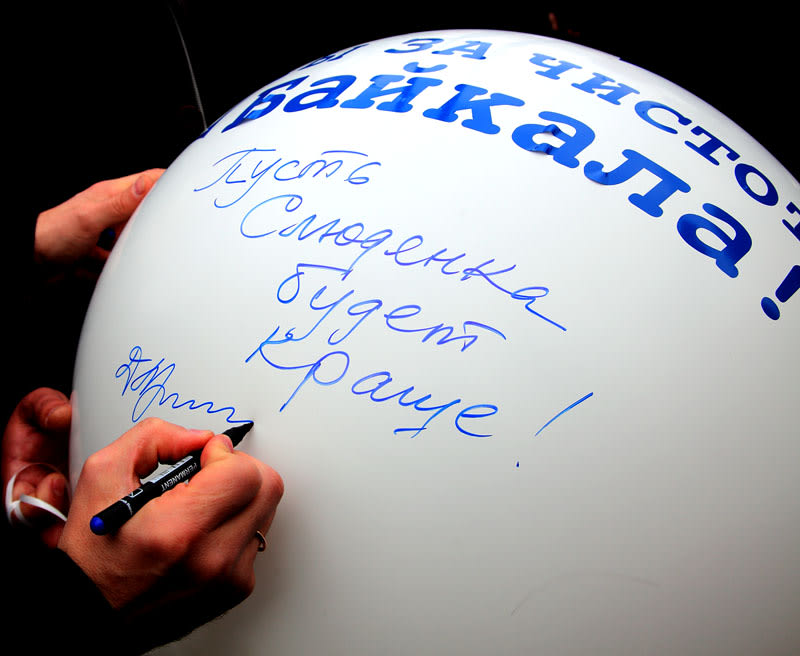 ЗА ЧИСТОТ
Байкала!
Пусть
Слюденка
будет
Краще!
PERMANENT